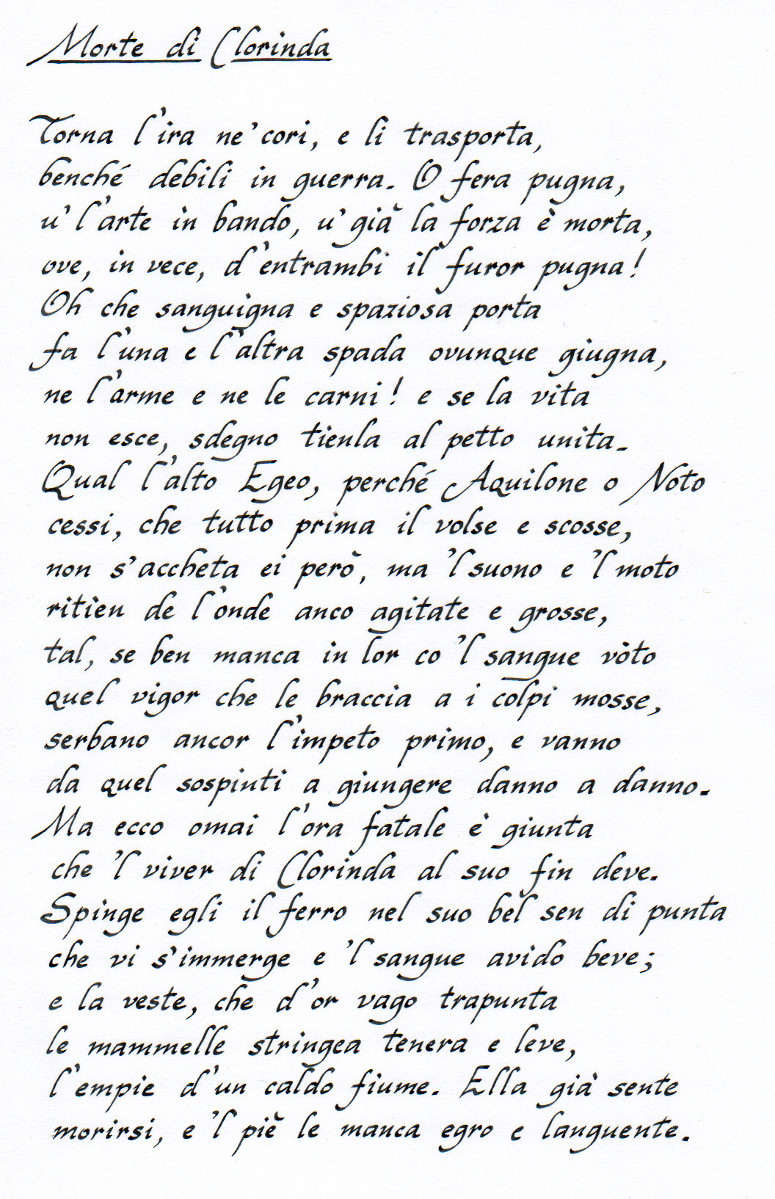 Morte di Clorinda
Torna l'ira ne' cori, e li trasporta,
benché debili in guerra. O fera pugna,
u' l'arte in bando, u' già la forza è morta,
ove, in vece, d'entrambi il furor pugna!
Oh che sanguigna e spaziosa porta
fa l'una e l'altra spada ovunque giugna,
ne l'arme e ne le carni! e se la vita
non esce, sdegno tienla al petto unita.
Qual l'alto Egeo, perché Aquilone o Noto
cessi, che tutto prima il volse e scosse,
non s'accheta ei però, ma 'l suono e 'l moto
ritien de l'onde anco agitate e grosse,
tal, se ben manca in lor co 'l sangue vòto
quel vigor che le braccia a i colpi mosse,
serbano ancor l'impeto primo, e vanno
da quel sospinti a giungere danno a danno.
Ma ecco omai l'ora fatale è giunta
che 'l viver di Clorinda al suo fin deve.
Spinge egli il ferro nel suo bel sen di punta
che vi s'immerge e 'l sangue avido beve;
e la veste, che d'or vago trapunta
le mammelle stringea tenera e leve,
l'empie d'un caldo fiume. Ella già sente
morirsi, e 'l piè le manca egro e languente.